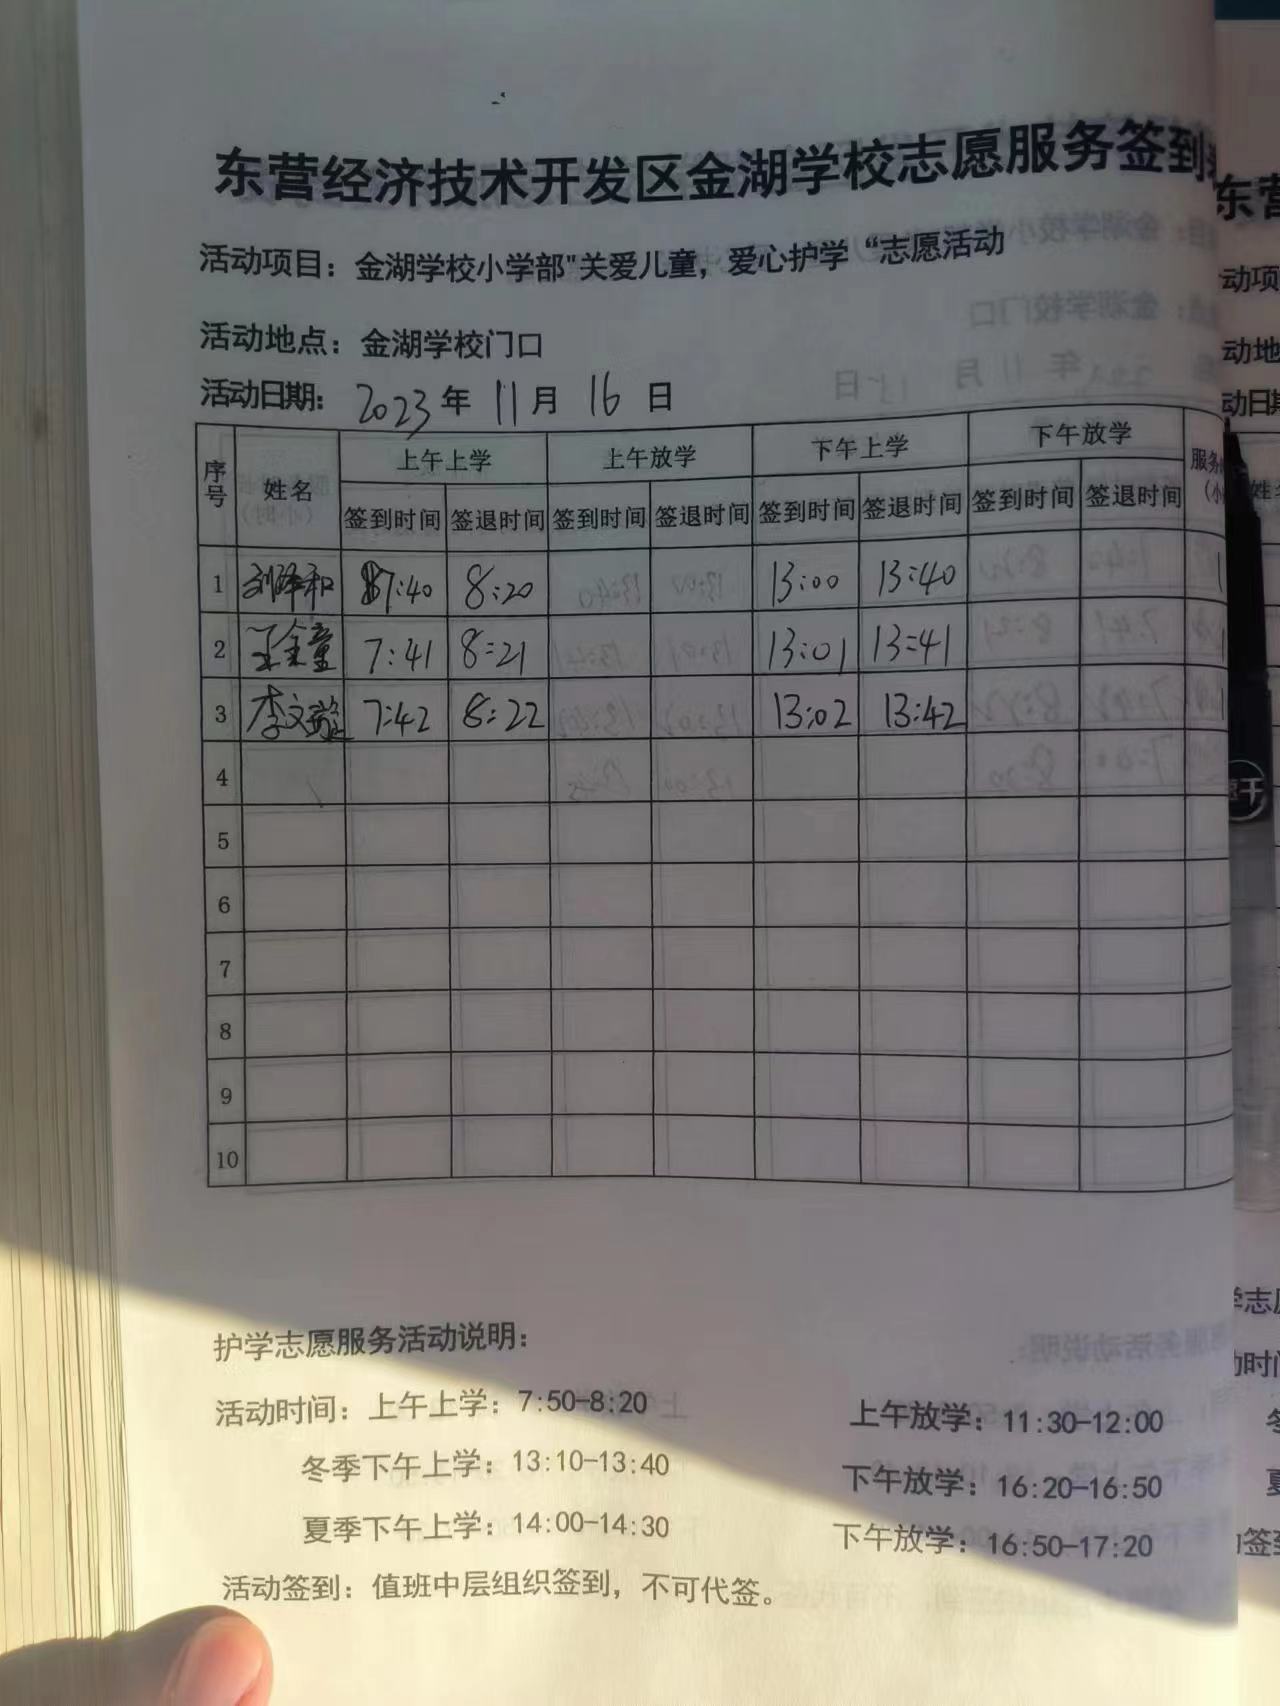 东营经济技术开发区金湖学校志愿服务签到
活动项目：金湖学校小学部"关爱儿童，爱心护学“志愿活动
活动地点：金湖学校门口
活动日期：2023年11月16日
序号 姓名 上午上学 上午放学 下午上学 下午放学 服务
签到时间 签退时间 签到时间 签退时间 签到时间 签退时间 签到时间 签退时间
1 刘泽和 7:40 8:20 13:00 13:40 1
2 王金童 7:41 8:21 13:01 13:41 1
3 李文 7:42 8:22 13:02 13:42 1
4
5
6
7
8
9
10
护学志愿服务活动说明：
活动时间：上午上学：7:50-8:20 上午放学：11:30-12:00
冬季下午上学：13:10-13:40 下午放学：16:20-16:50
夏季下午上学：14:00-14:30 下午放学：16:50-17:20
活动签到：值班中层组织签到，不可代签。